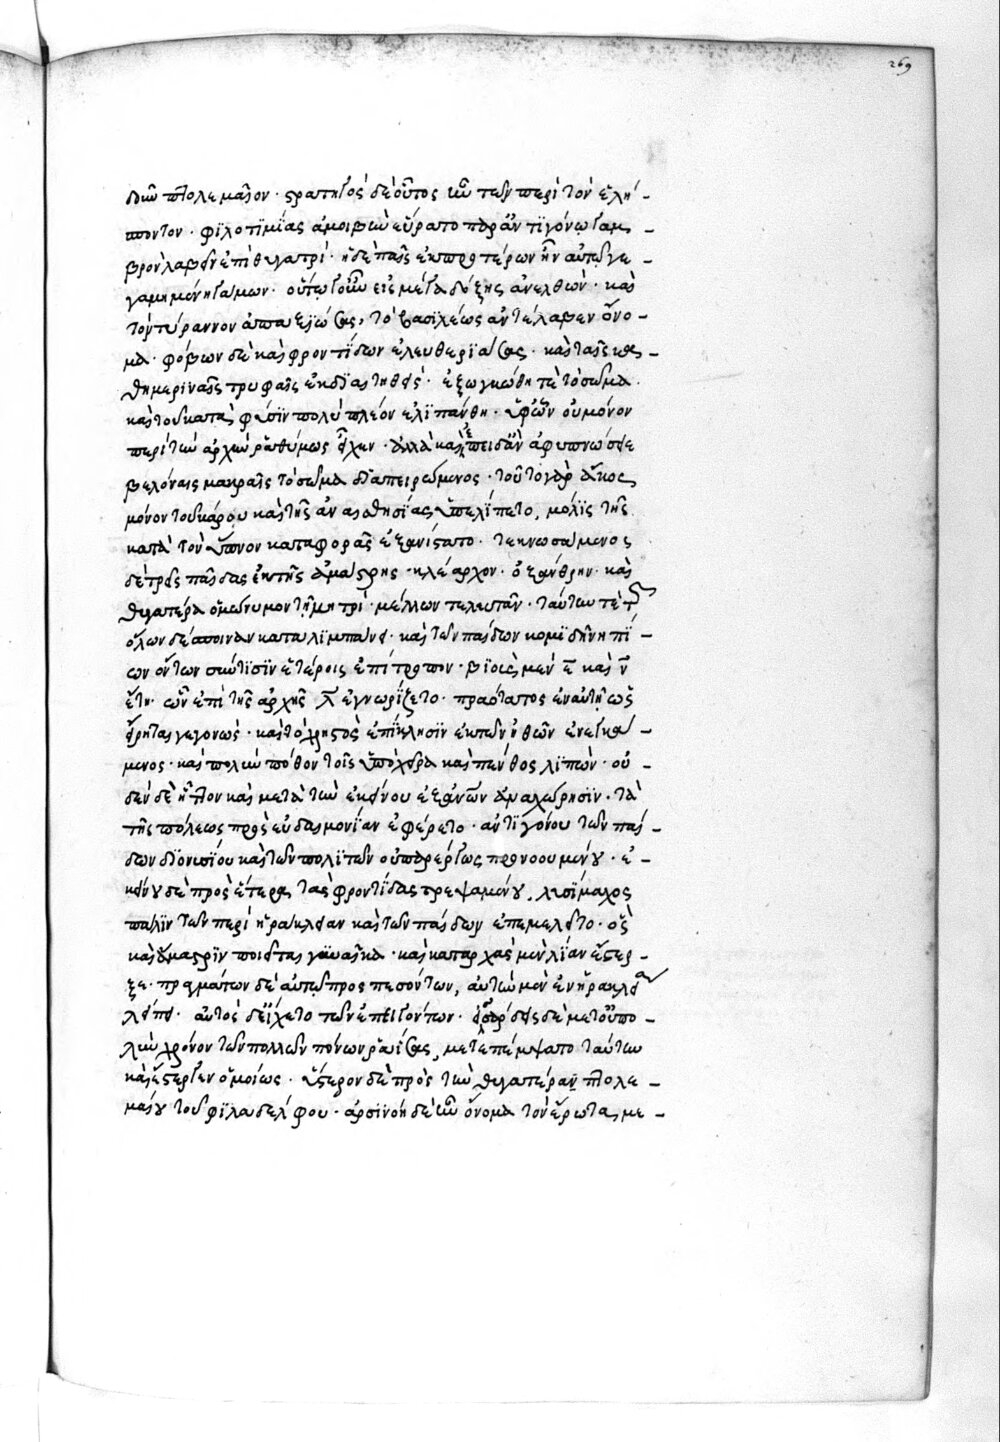 διων πτολεμαῖον· στρατηγὸς δὲ οὗτος ἦν τῶν περὶ τὸν ἑλλή-
σποντον· φιλοτιμίας ἀμοιβὴν εὕρατο παρ' ἀντιγόνου γαμ-
βρὸν λαβεῖν ἐπὶ θυγατρί· ἡ δὲ παῖς ἐκ προτέρων ἦν αὐτῷ γε-
γαμημένη γάμων· οὕτω γοῦν εἰς μέγα δόξης ἀνελθών· καὶ
τὸν τύραννον ἀπαξιώσας, τὸ βασιλέως ἀντέλαβεν ὄνο-
μα· φόβων δὲ καὶ φροντίδων ἐλευθεριάσας· καὶ ταῖς κα-
θημεριναῖς τρυφαῖς ἐκδιαιτηθείς· ἐξωγκώθη τε τὸ σῶμα
καὶ τοῦ κατὰ φύσιν πολὺ πλέον ἐλιπάνθη· ὑφ' ὧν οὐ μόνον
περὶ τὴν ἀρχὴν ῥαθύμως εἶχεν· ἀλλὰ καὶ ἐπειδὰν ἀφυπνώσειε
βελόναις μακραῖς τὸ σῶμα διαπειρώμενος· τοῦτο γὰρ ἄκος
μόνον τοῦ κάρου καὶ τῆς ἀναισθησίας ὑπελίπετο, μόλις τῆς
κατὰ τὸν ὕπνον καταφορᾶς ἐξανίστατο· τεκνωσάμενος
δὲ τρεῖς παῖδας ἐκ τῆς ἀμάστρης· κλέαρχον· ὀξάνθρην· καὶ
θυγατέρα ὁμώνυμον τῇ μητρί· μέλλων τελευτᾶν· ταύτην τὲ τῶν
ὅλων δέσποιναν καταλιμπάνει· καὶ τῶν παίδων κομιδῆ νηπί-
ων ὄντων σὺν τισὶν ἑτέροις ἐπίτροπον· βιοὺς μὲν ε καὶ ν
ἔτη· ὧν ἐπὶ τῆς ἀρχῆς λ ἐγνωρίζετο· πραότατος ἐν αὐτῆ ὡς
εἴρηται γεγονώς· καὶ τὸ χρηστὸς ἐπίκλησιν ἐκ τῶν ἠθῶν ἐνεγκά-
μενος· καὶ πολὺν πόθον τοῖς ὑπὸ χεῖρα καὶ πένθος λιπών· οὐ-
δὲν δὲ ἧττον καὶ μετὰ τὴν ἐκείνου ἐξ ἀνθρώπων ἀναχώρησιν· τὰ
τῆς πόλεως πρὸς εὐδαιμονίαν ἐφέρετο· ἀντιγόνου τῶν παί-
δων διονυσίου καὶ τῶν πολιτῶν οὐ παρέργως προνοουμένου· ἐ-
κείνου δὲ πρὸς ἕτερα τὰς φροντίδας τρεψαμένου, λυσίμαχος
πάλιν τῶν περὶ ἡράκλειαν καὶ τῶν παίδων ἐπεμελεῖτο· ὃς
καὶ ἄμαστριν ποιεῖται γυναῖκα· καὶ κατ' ἀρχὰς μὲν λίαν ἔστερ-
ξε· πραγμάτων δὲ αὐτῷ προσπεσόντων, αὐτὴν μὲν ἐν ἡρακλείᾳ
λείπει· αὐτὸς δὲ εἴχετο τῶν ἐπειγόντων· ἐς σάρδεις δὲ μετ' οὐ πο-
λὺν χρόνον τῶν πολλῶν πόνων ῥαΐσας, μετεπέμψατο ταύτην
καὶ ἔστεργεν ὁμοίως· ὕστερον δὲ πρὸς τὴν θυγατέραν πτολε-
μαίου τοῦ φιλαδέλφου· ἀρσινόη δὲ ἦν ὄνομα τὸν ἔρωτα με-
269